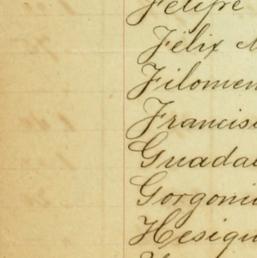 Felipe
Félix
Filomen
Francis
Guadal
Gorgoni
Hesiqu